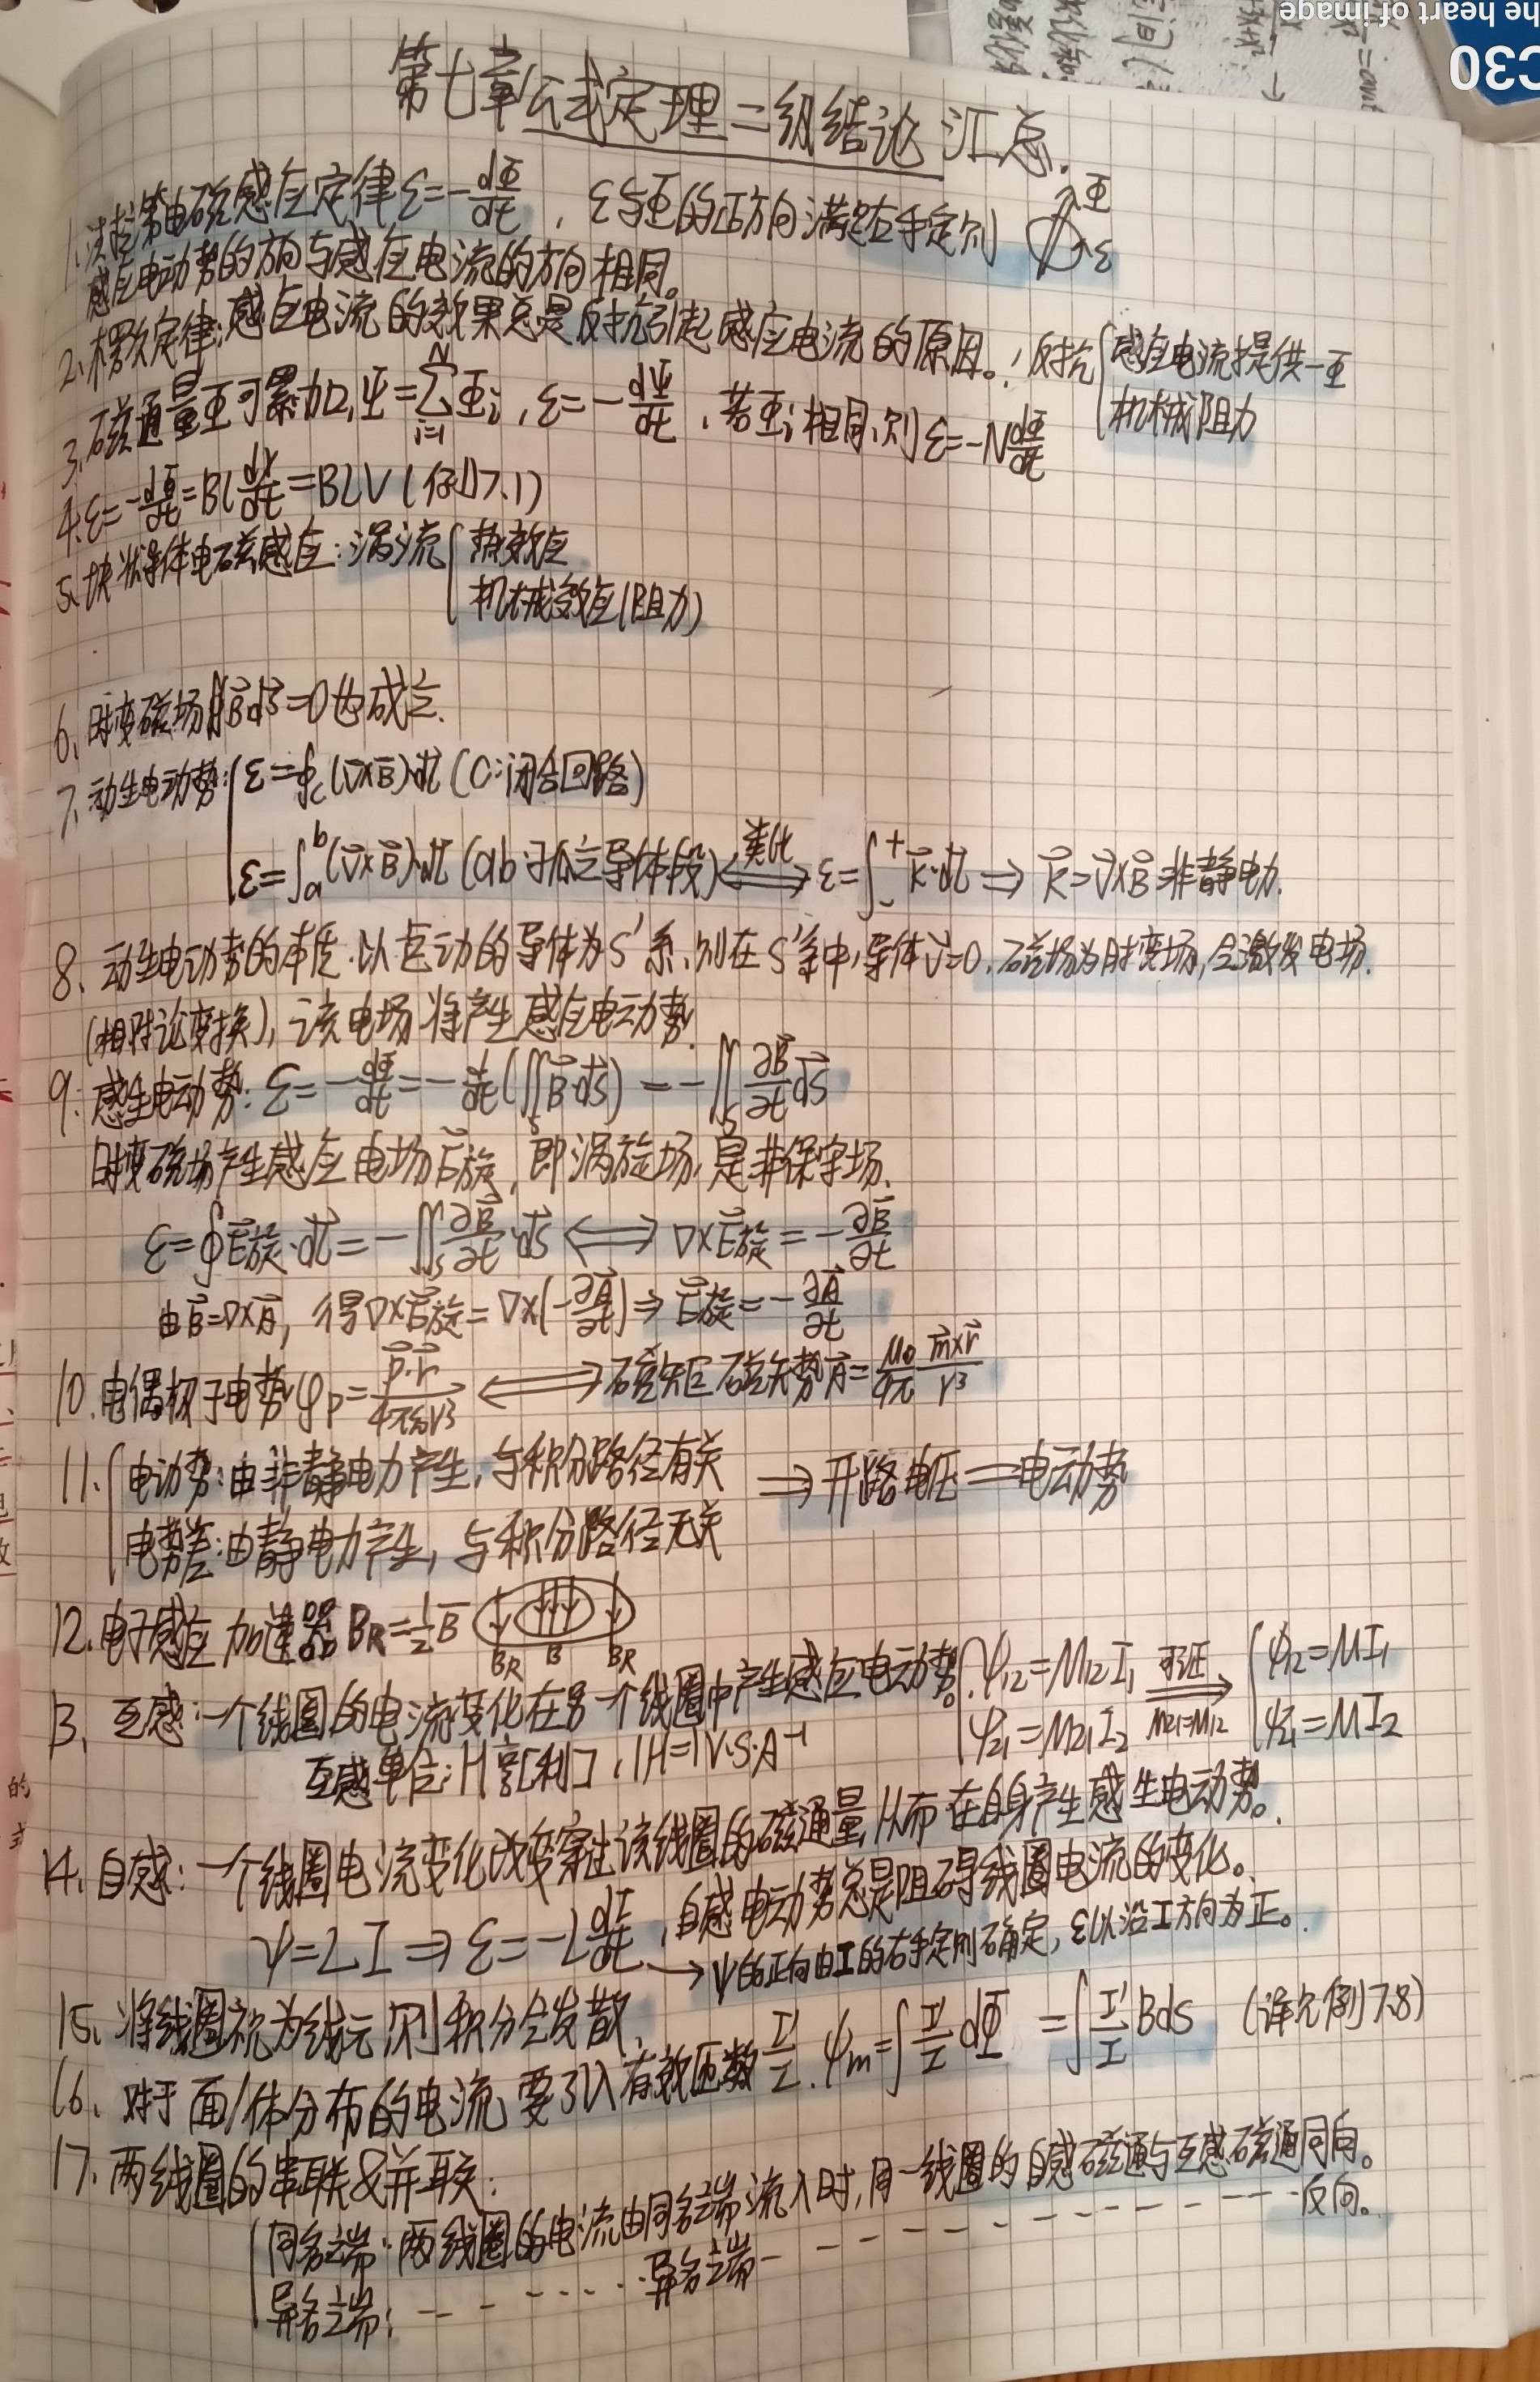 第七章公式定理二级结论汇总.
1.法拉第电磁感应定律 ε=-dΦ/dt , ε与Φ的正方向满足右手定则 Φ ε
感应电动势的方向与感应电流的方向相同。
2.楞次定律:感应电流的效果总是反抗引起感应电流的原因。反抗{感应电流提供-Φ
机械阻力
3.磁通量Φ可累加,Ψ=∑_{i=1}^{N}Φi , ε=-dΨ/dt , 若Φi相同,则ε=-NdΦ/dt
4.ε=-dΦ/dt=Bl dx/dt=BLV(例7.1)
5.块状导体电磁感应:涡流{热效应
机械效应(阻力)
6.时变磁场∯B⃗dS⃗=0也成立.
7.动生电动势:{ε=∮c(v⃗×B⃗)·dl⃗(C:闭合回路)
ε=∫_a^b(v⃗×B⃗)·dl⃗(ab:孤立导体段)⟺类比 ε=∫_-^+ k⃗·dl⃗⇒k⃗=v⃗×B⃗:非静电力.
8.动生电动势的本质.以运动的导体为S'系,则在S'系中,导体v⃗=0,磁场为时变场,会激发电场.
(相对论变换),该电场将产生感应电动势.
9.感生电动势:ε=-dΦ/dt=-d/dt(∬_S B⃗·dS⃗)=-∬_S ∂B⃗/∂t dS⃗
时变磁场产生感应电场E⃗旋,即涡旋场,是非保守场.
ε=∮E⃗旋·dl⃗=-∬_S ∂B⃗/∂t·dS⃗⟺∇×E⃗旋=-∂B⃗/∂t
由B⃗=∇×A⃗,得∇×E⃗旋=∇×(-∂A⃗/∂t)⇒E⃗旋=-∂A⃗/∂t
10.电偶极子电势φp=p⃗·r⃗/4πε₀r³⟺磁矩磁矢势A⃗=μ₀/4π m⃗×r⃗/r³
11.{电动势:由非静电力产生,与积分路径有关 ⇒开路电压=电动势
电势差:由静电力产生,与积分路径无关
12.电子感应加速器 B_R=1/2 B̄ B_R B B_R
13.互感:一个线圈的电流变化在另一个线圈中产生感应电动势。{ψ12=M12I1 可证 M21=M12 ⇒{ψ12=MI1
ψ21=M21I2 ψ21=MI2
互感单位:H 亨[利],1H=1V·S·A⁻¹
14.自感:一个线圈电流变化改变穿过该线圈的磁通量,从而在自身产生感生电动势。
ψ=LI⇒ε=-L dI/dt ,自感电动势总是阻碍线圈电流的变化。
→ψ的正向由I的右手定则确定,ε以沿I方向为正。
15.将线圈视为线元,则积分会发散
16.对于面/体分布的电流,要引入有效匝数 I'/I . ψm=∫I'/I dΦ =∫I'/I BdS (详见例7.8)
17.两线圈的串联&并联:
{同名端:两线圈的电流由同名端流入时,同一线圈的自感磁通与互感磁通同向。
异名端:- - - ····异名端- - - - - - - - - -反向。
he heart of image
C30